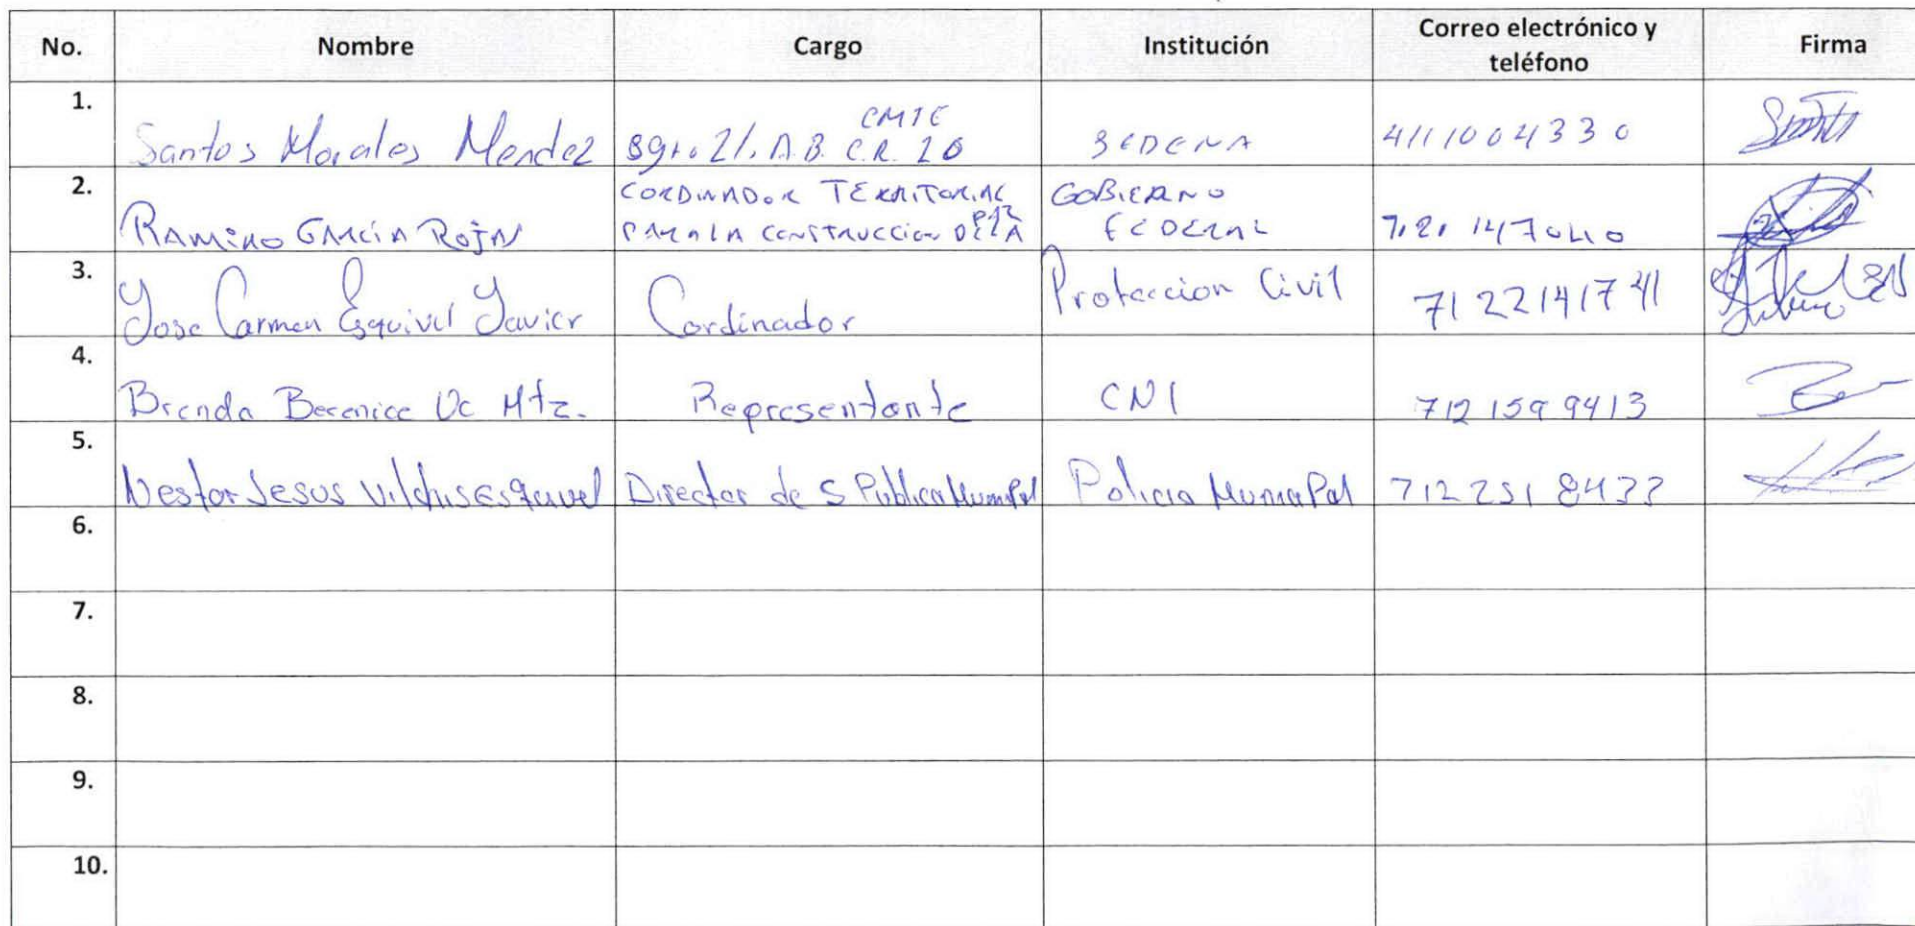 No. Nombre Cargo Institución Correo electrónico y teléfono Firma
1. Santos Morales Mendez Sgto. 2/o. A.B. C.R. 20 CMTE SEDENA 4111004330
2. RAMIRO GARCÍA ROJAS CORDINADOR TERRITORIAL
PARA LA CONSTRUCCION DE LA PAZ GOBIERNO
FEDERAL 7201147040
3. Jose Carmen Esquivel Javier Cordinador Proteccion Civil 7122141741
4. Brenda Berenice Uc Mtz. Representante CNI 7121599413
5. Nestor Jesus Vilchis Esquivel Director de S Publica Municipal Policia Municipal 712251 8433
6.
7.
8.
9.
10.